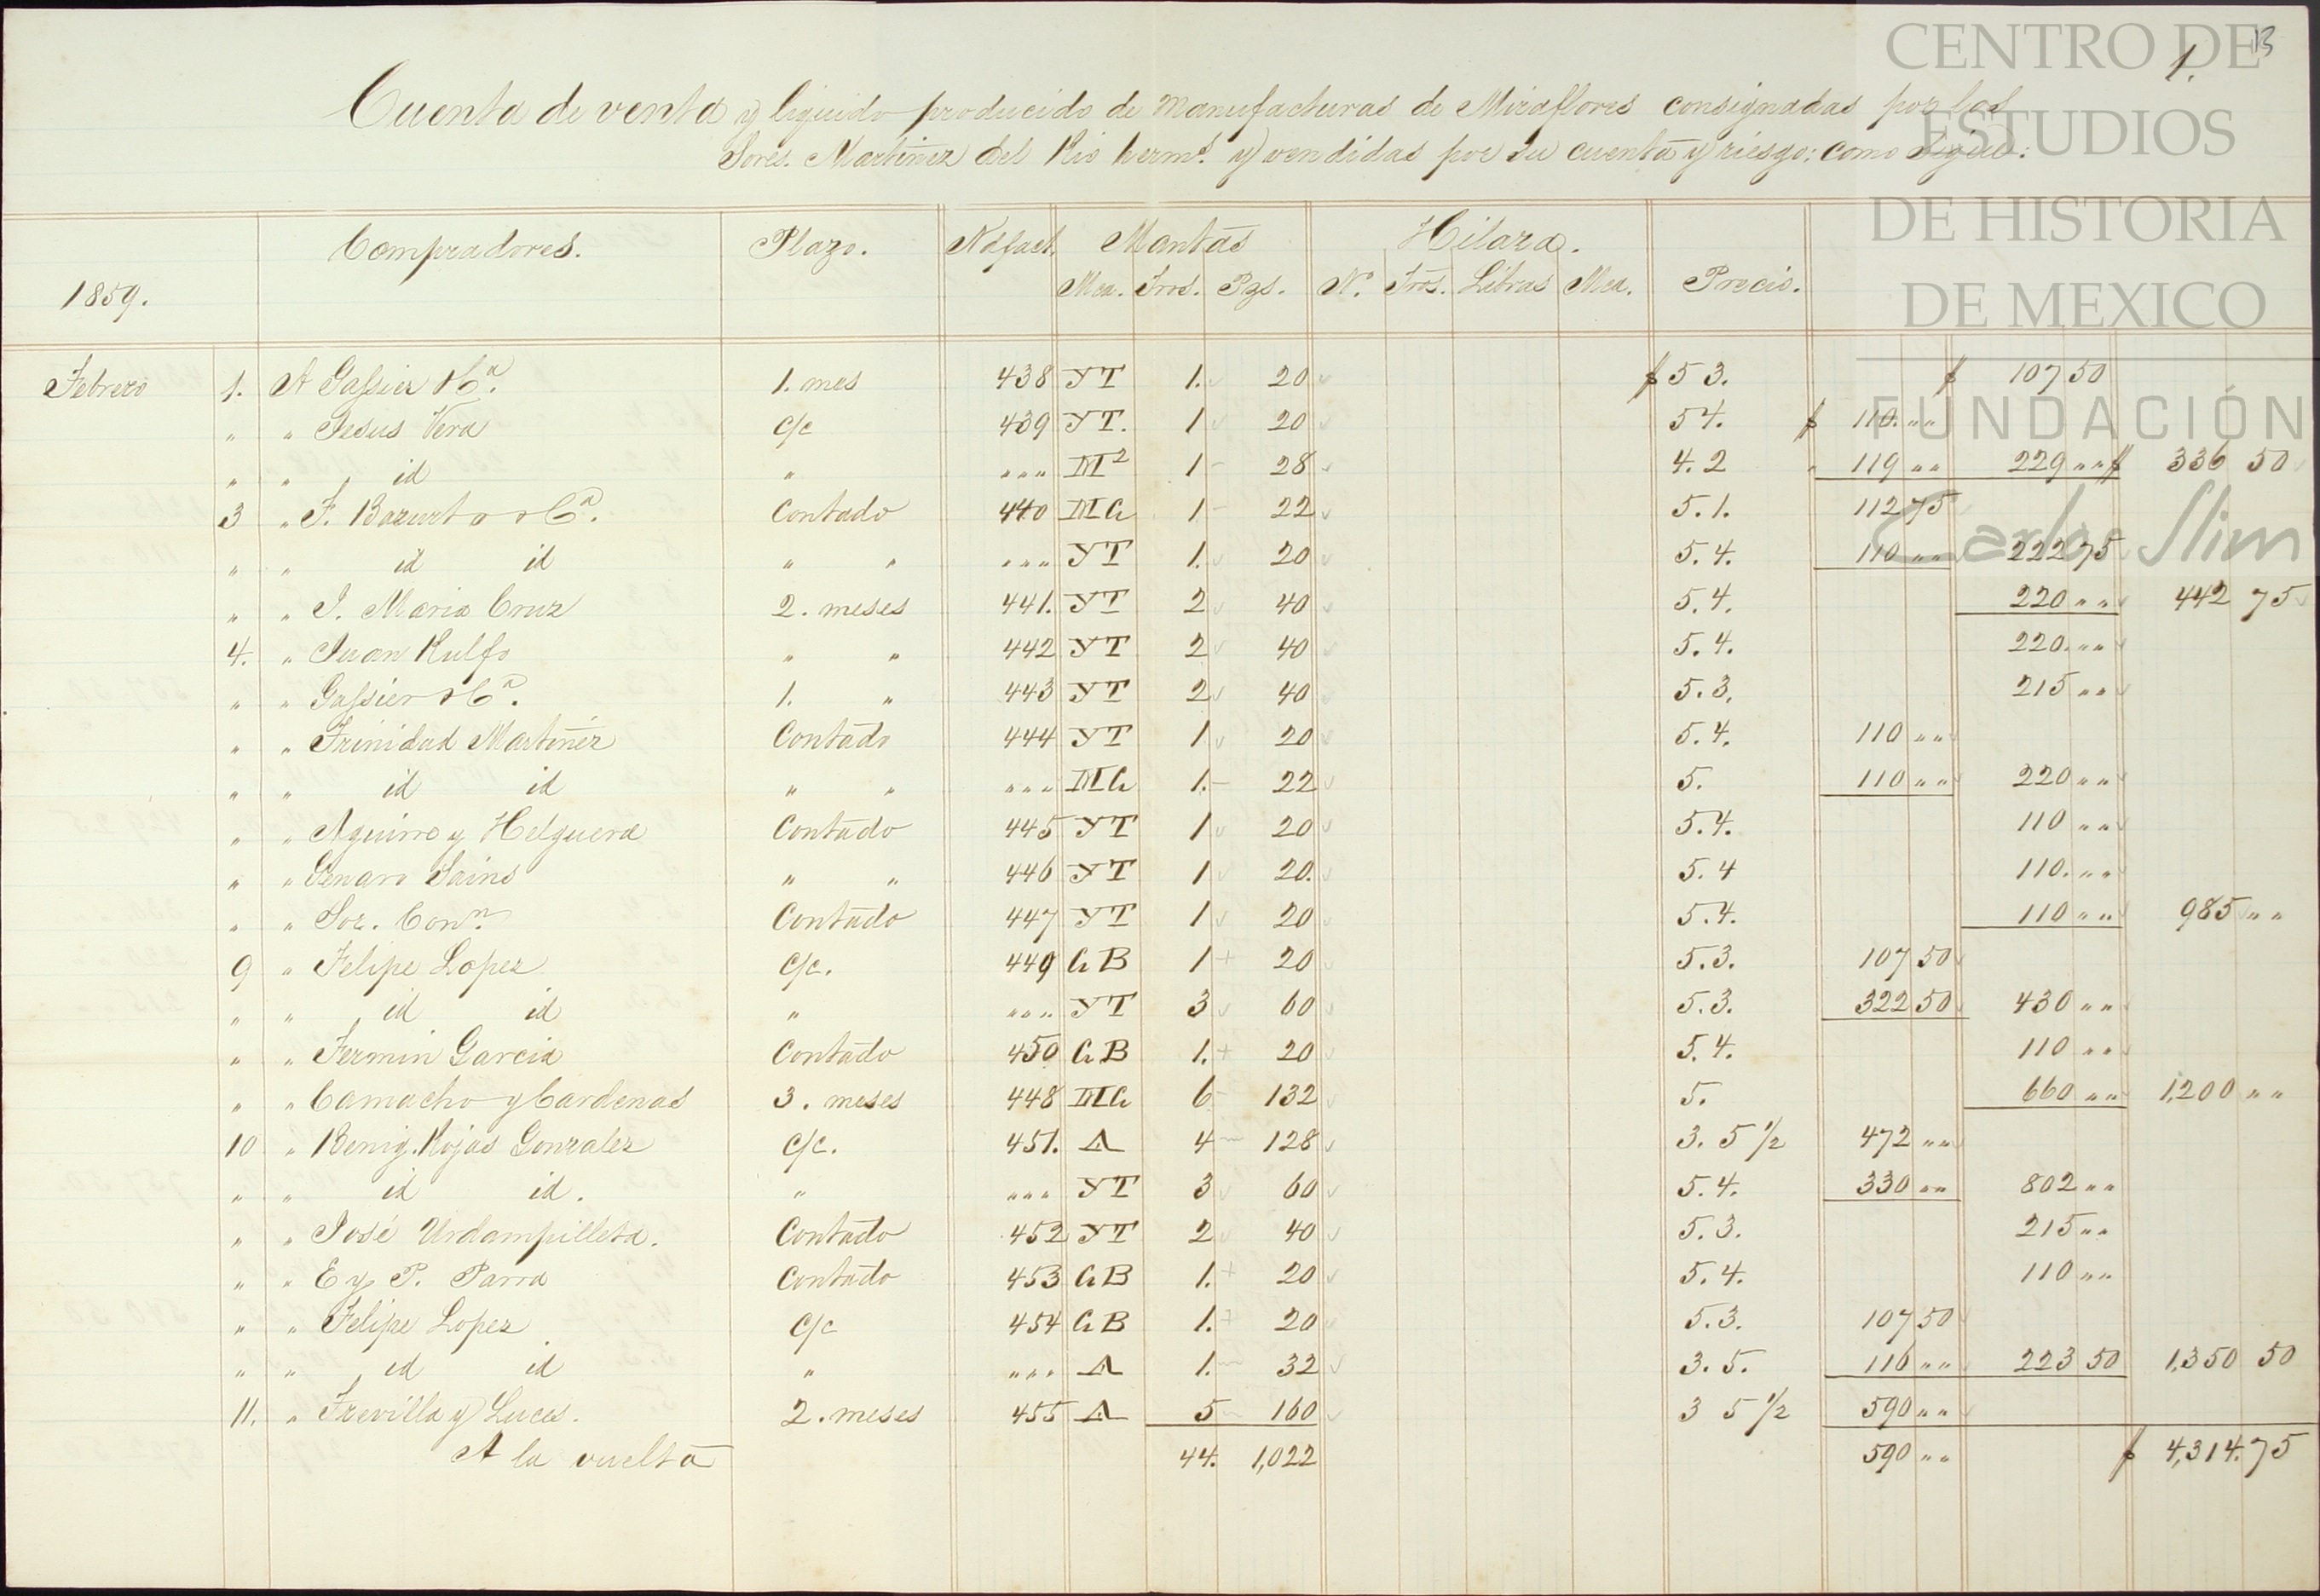 CENTRO DE
ESTUDIOS
DE HISTORIA
DE MEXICO
FUNDACIÓN
Carlos Slim
1. 13
Cuenta de venta y liquido producido de manufacturas de Miraflores consignadas por los
Sores. Martinez del Rio herms. y vendidas por su cuenta y riesgo: como sigue:
1859. Compradores. Plazo. Nd fact. Mantas Hilaza. Precio.
Mca. Tros. Pzs. No. Tros. Libras Mca.
Febrero 1. A Gassier & Ca. 1. mes 438 YT 1. 20 $ 5 3. $ 107 50
" " Jesus Vera c/c 439 YT. 1 20 5 4. $ 110. " "
" " id " " " " M2 1 28 4. 2 " 119 " " 229 " " $ 336 50
3 " F. Bazurto & Ca. Contado 440 MG 1 22 5. 1. 112 75
" " id id " " " " " YT 1. 20 5. 4. 110 " " 222 75
" " J. Maria Cruz 2. meses 441. YT 2 40 5. 4. 220 " " 442 75
4. " Juan Rulfo " " 442 YT 2 40 5. 4. 220. " "
" " Gassier & Ca. 1. " 443 YT 2 40 5. 3. 215 " "
" " Trinidad Martinez Contado 444 YT 1 20 5. 4. 110 " "
" " id id " " " " " MG 1. 22 5. 110 " " 220 " "
" " Aguirre y Helguera Contado 445 YT 1 20 5. 4. 110 " "
" " Genaro Sains " " 446 YT 1 20. 5. 4 110. " "
" " Sor. Conn. Contado 447 YT 1 20 5. 4. 110 " " 985 " "
9 " Felipe Lopez c/c. 449 GB 1 20 5. 3. 107 50
" " id id " " " " YT 3 60 5. 3. 322 50 430 " "
" " Fermin Garcia Contado 450 GB 1. 20 5. 4. 110 " "
" " Camacho y Cardenas 3. meses 448 MG 6 132 5. 660 " " 1,200 " "
10 " Benig. Rojas Gonzalez c/c. 451. A 4 128 3. 5 1/2 472 " "
" " id id. " " " " YT 3 60 5. 4. 330 " " 802 " "
" " José Urdampilleta. Contado 452 YT 2 40 5. 3. 215 " "
" " E y P. Parra Contado 453 GB 1. 20 5. 4. 110 " "
" " Felipe Lopez c/c 454 GB 1. 20 5. 3. 107 50
" " id id " " " " A 1. 32 3. 5. 116 " " 223 50 1,350 50
11. " Trevilla y Luces. 2. meses 455 A 5 160 3 5 1/2 590 " "
A la vuelta 44. 1,022 590 " " $ 4,314. 75